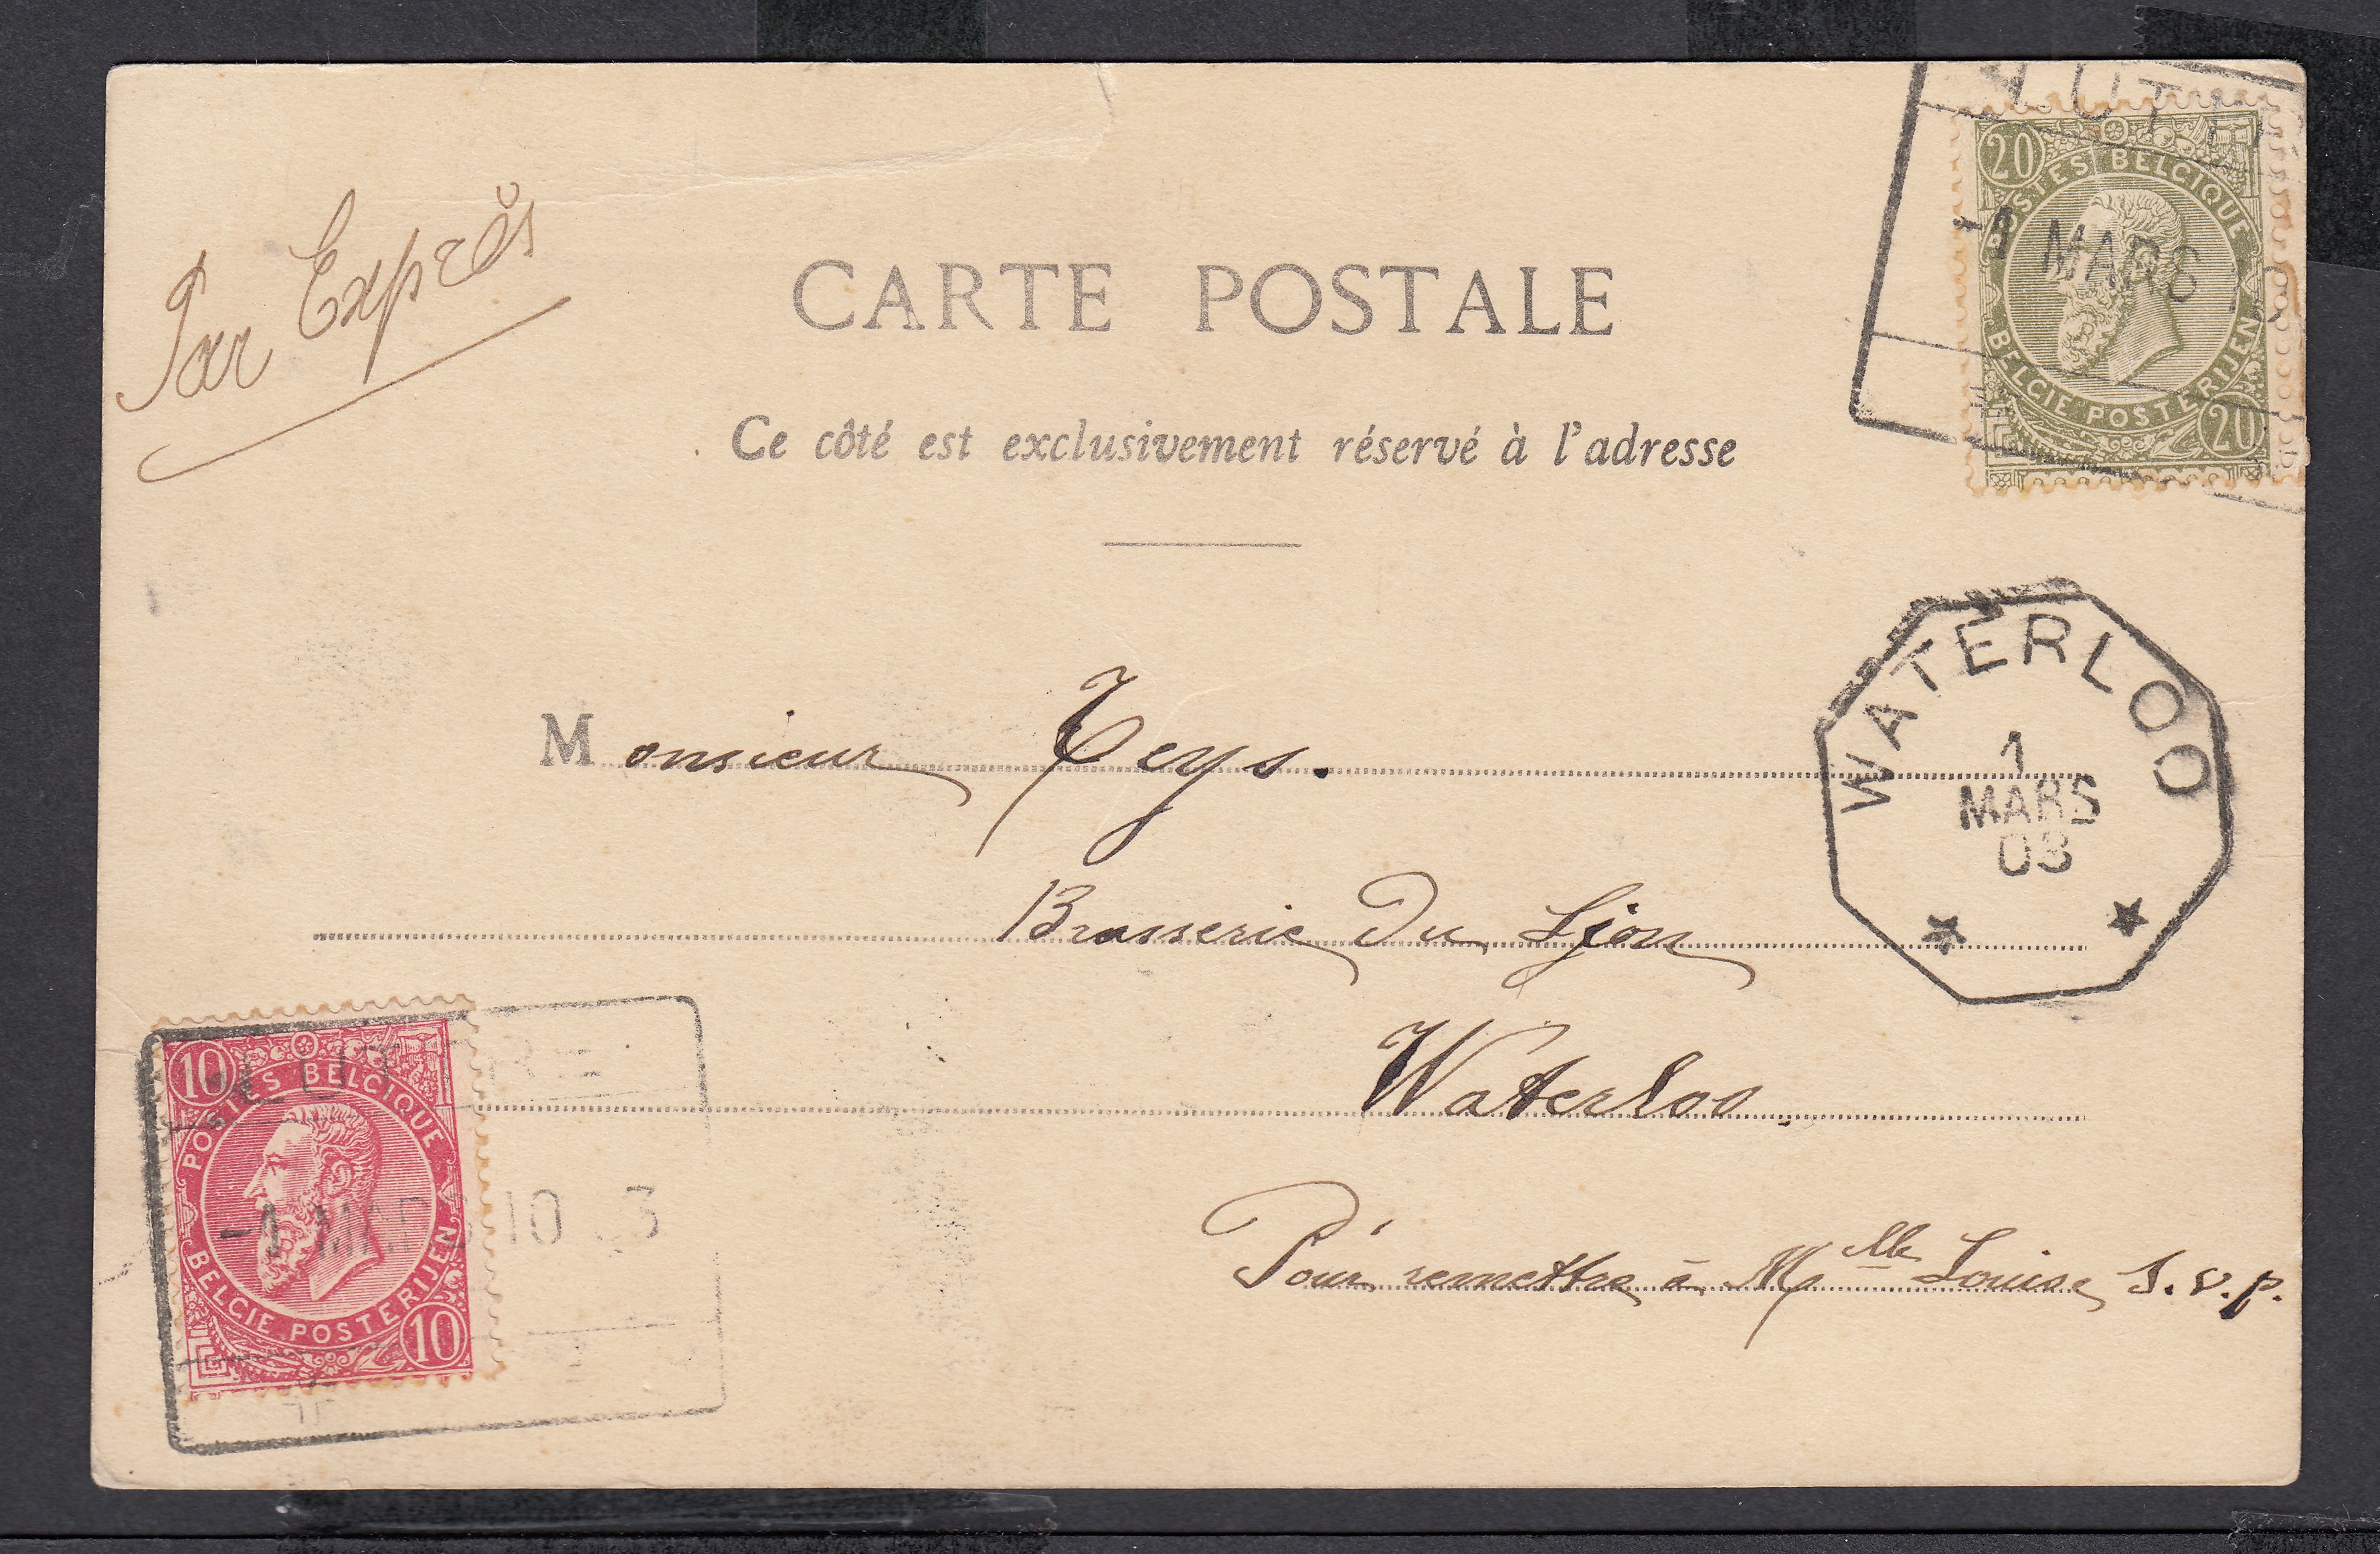 Par Exprès
CARTE POSTALE
Ce côté est exclusivement réservé à l'adresse
20
POSTES BELGIQUE
-1 MARS
BELGIE POSTERIJEN
20
WATERLOO
1
MARS
03
Monsieur Teys.
Brasserie Du Lion
Waterloo
Pour remettre à Mlle Louise S.V.P.
10
POSTES BELGIQUE
-1 MARS 10 3
BELGIE POSTERIJEN
10